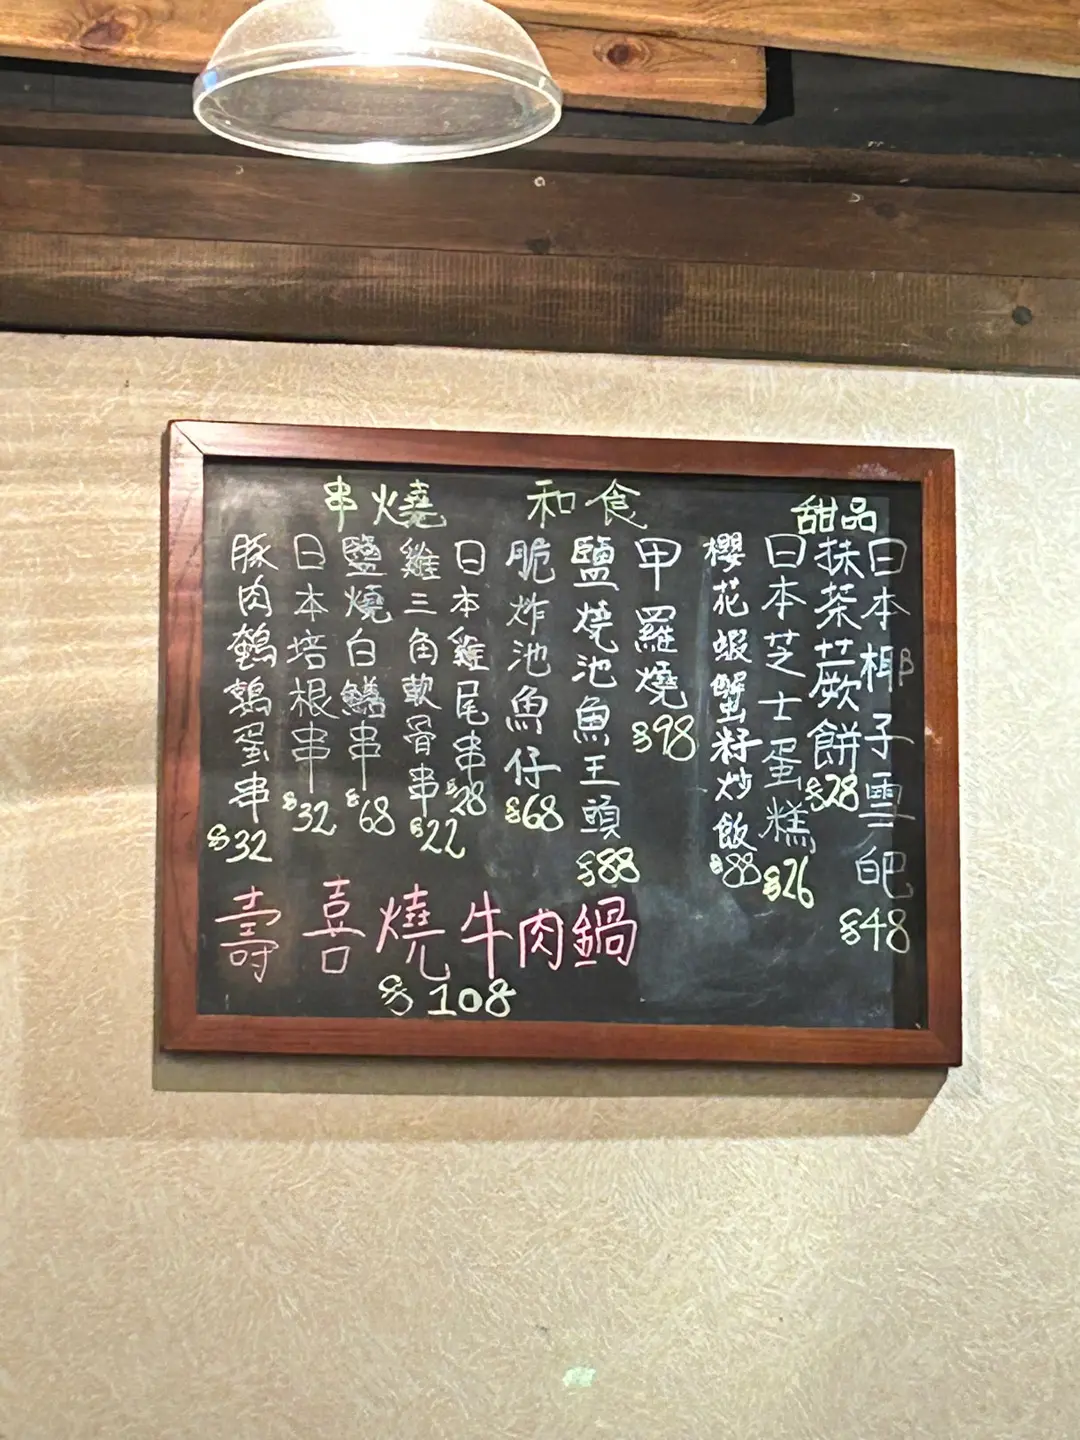 串燒
和食
甜品
日本椰子雪吧
$48
抹茶蕨餅
$28
日本芝士蛋糕
$26
櫻花蝦蟹籽炒飯
$88
甲羅燒
$98
鹽燒池魚王頭
$88
脆炸池魚仔
$68
日本雞尾串
$28
雞三角軟骨串
$22
鹽燒白鱔串
$68
日本培根串
$32
豚肉鵪鶉蛋串
$32
壽喜燒牛肉鍋
$108